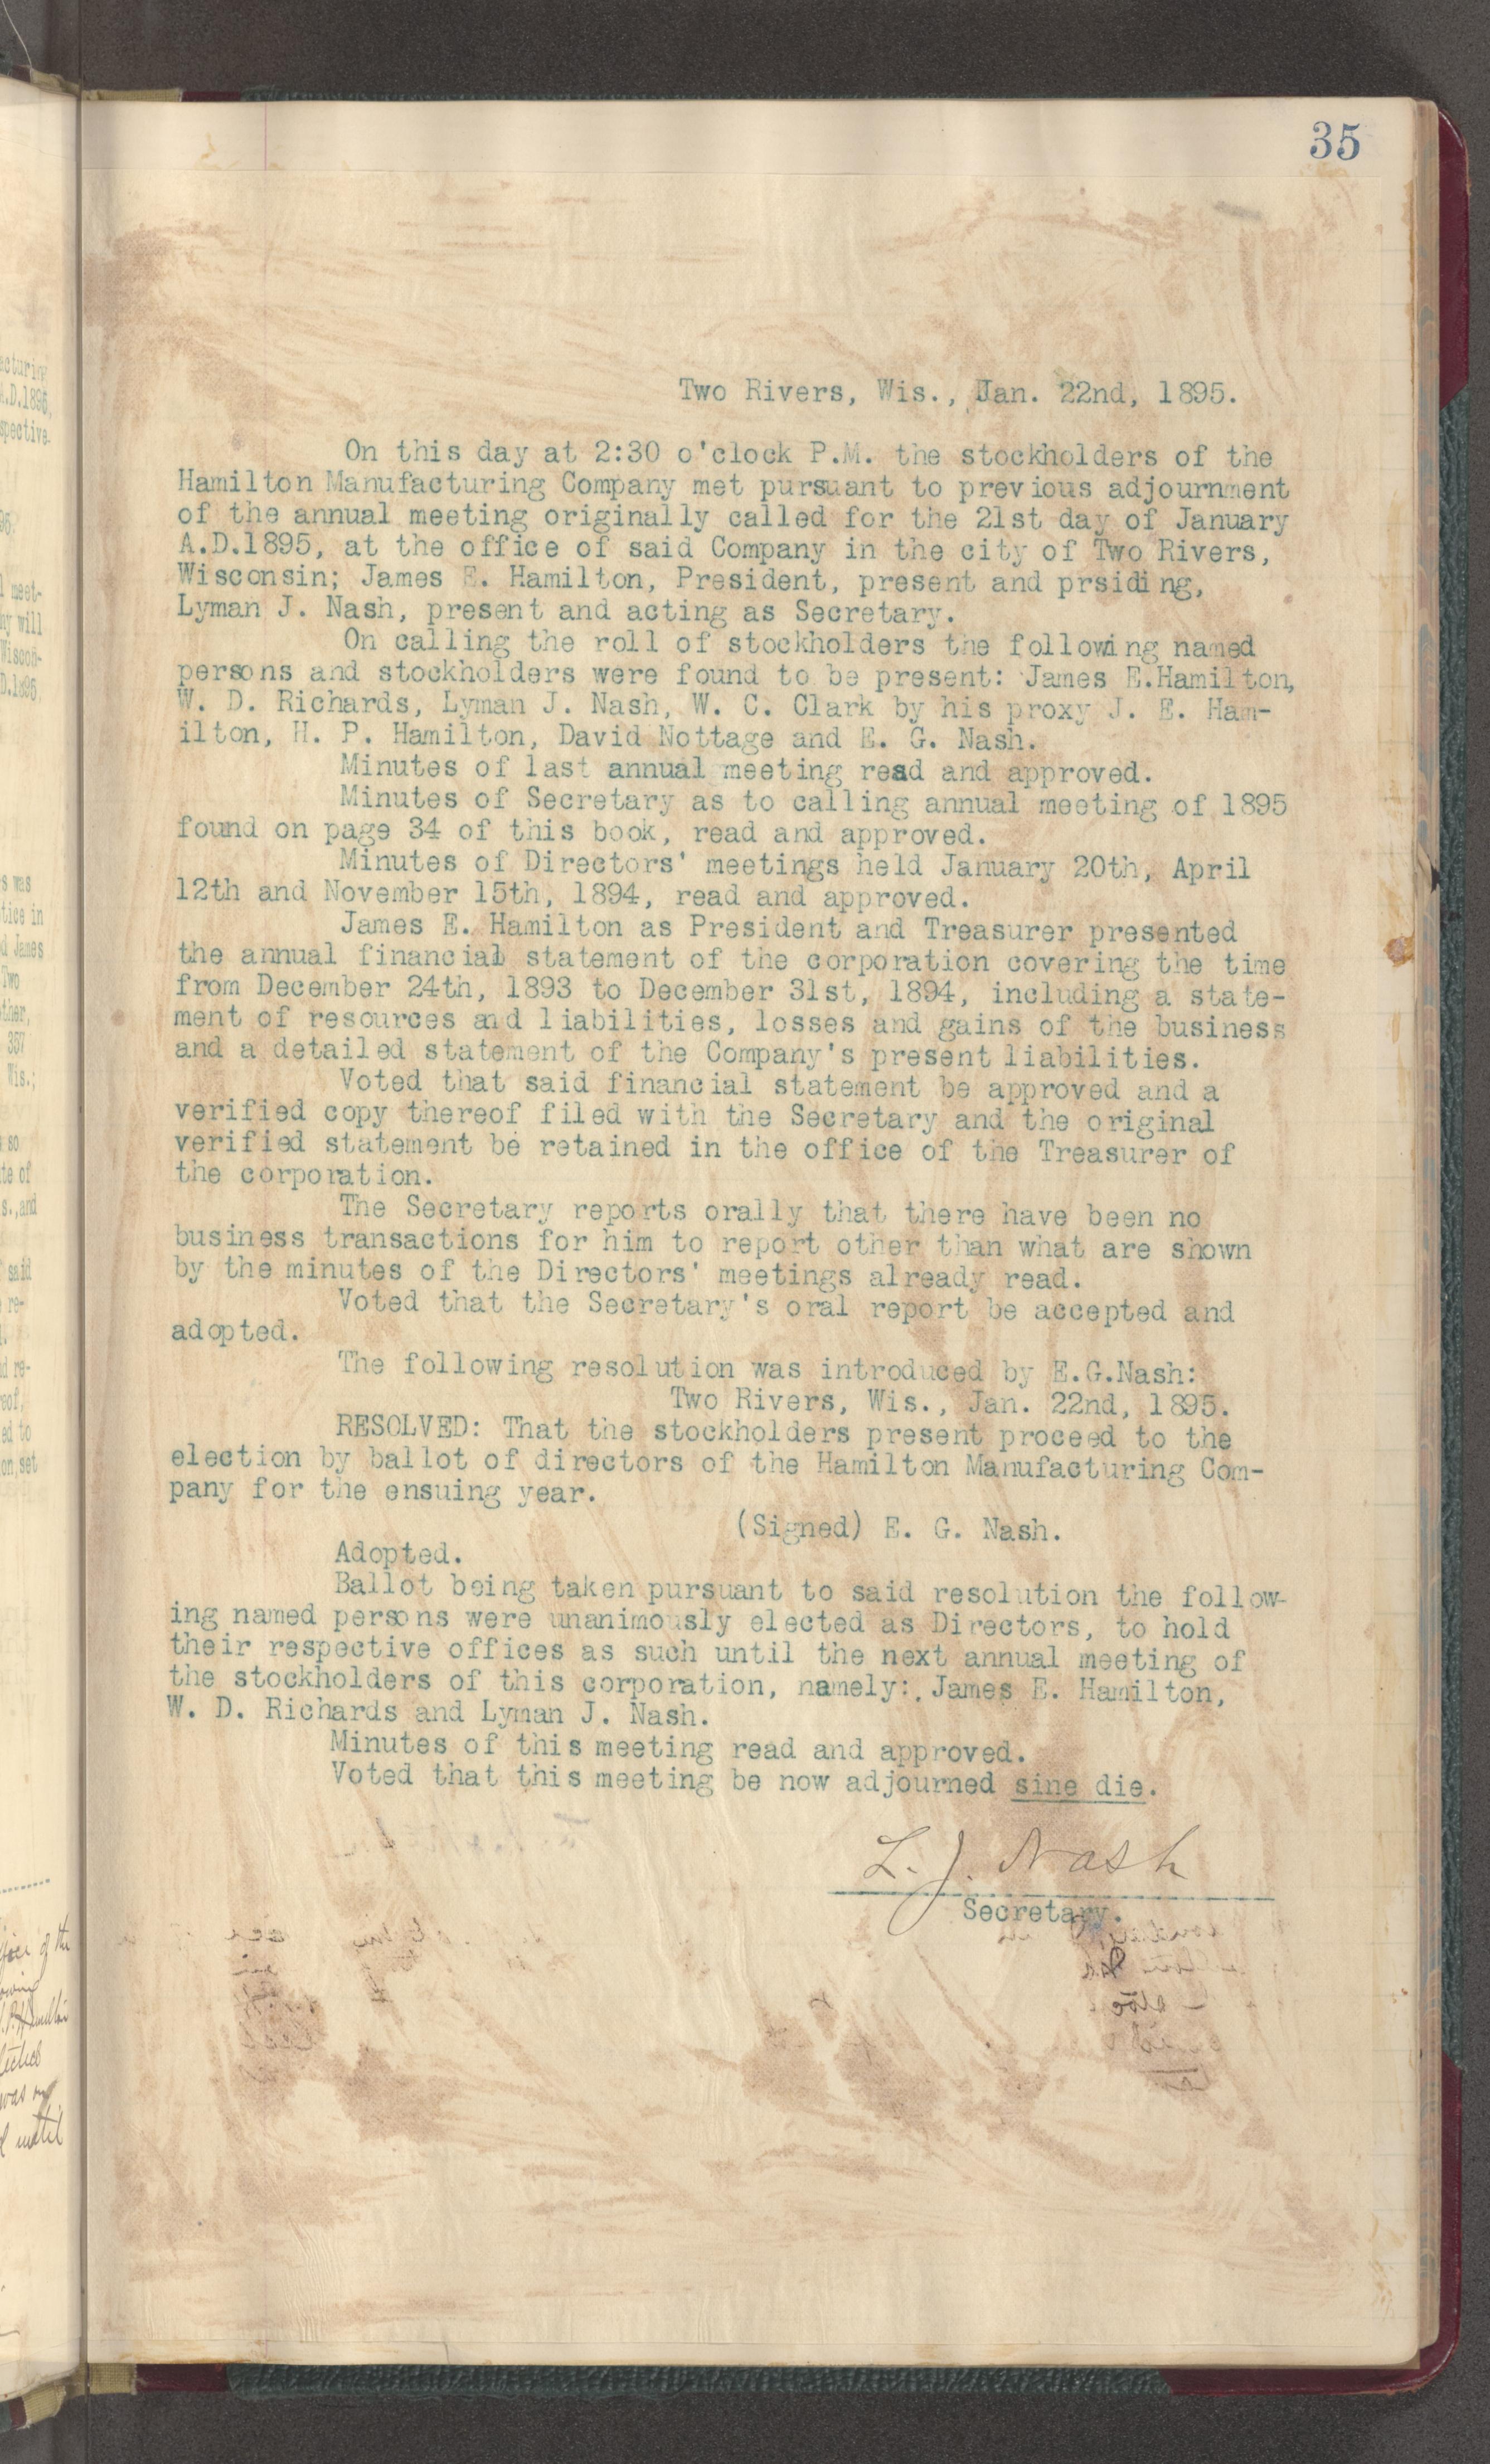 35
Two Rivers, Wis., Jan. 22nd, 1895.
On this day at 2:30 o'clock P.M. the stockholders of the
Hamilton Manufacturing Company met pursuant to previous adjournment
of the annual meeting originally called for the 21st day of January
A.D.1895, at the office of said Company in the city of Two Rivers,
Wisconsin; James E. Hamilton, President, present and prsiding,
Lyman J. Nash, present and acting as Secretary.
On calling the roll of stockholders the following named
persons and stockholders were found to be present: James E.Hamilton,
W. D. Richards, Lyman J. Nash, W. C. Clark by his proxy J. E. Ham-
ilton, H. P. Hamilton, David Nottage and E. G. Nash.
Minutes of last annual meeting read and approved.
Minutes of Secretary as to calling annual meeting of 1895
found on page 34 of this book, read and approved.
Minutes of Directors' meetings held January 20th, April
12th and November 15th, 1894, read and approved.
James E. Hamilton as President and Treasurer presented
the annual financial statement of the corporation covering the time
from December 24th, 1893 to December 31st, 1894, including a state-
ment of resources and liabilities, losses and gains of the business
and a detailed statement of the Company's present liabilities.
Voted that said financial statement be approved and a
verified copy thereof filed with the Secretary and the original
verified statement be retained in the office of the Treasurer of
the corporation.
The Secretary reports orally that there have been no
business transactions for him to report other than what are shown
by the minutes of the Directors' meetings already read.
Voted that the Secretary's oral report be accepted and
adopted.
The following resolution was introduced by E.G.Nash:
Two Rivers, Wis., Jan. 22nd, 1895.
RESOLVED: That the stockholders present proceed to the
election by ballot of directors of the Hamilton Manufacturing Com-
pany for the ensuing year.
(Signed) E. G. Nash.
Adopted.
Ballot being taken pursuant to said resolution the follow-
ing named persons were unanimously elected as Directors, to hold
their respective offices as such until the next annual meeting of
the stockholders of this corporation, namely: James E. Hamilton,
W. D. Richards and Lyman J. Nash.
Minutes of this meeting read and approved.
Voted that this meeting be now adjourned sine die.
L. J. Nash
Secretary.